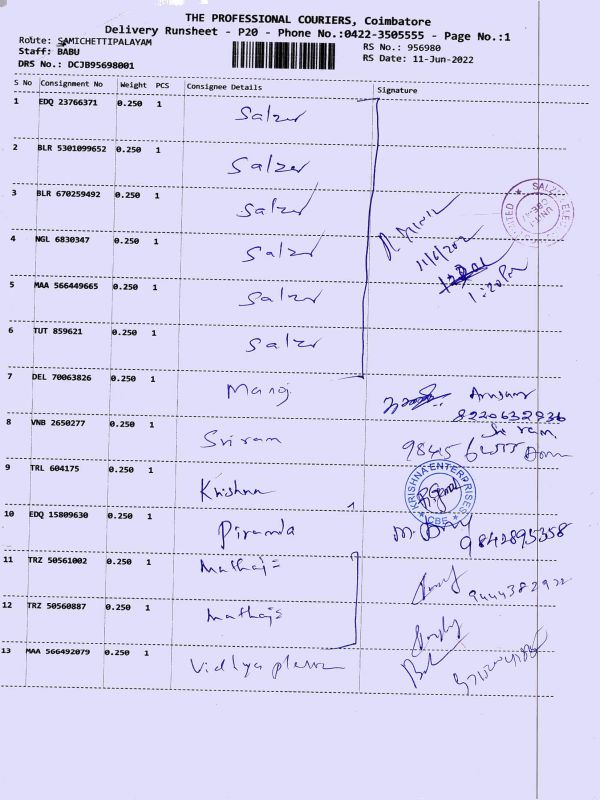 THE PROFESSIONAL COURIERS, Coimbatore
Delivery Runsheet - P20 - Phone No.:0422-3505555 - Page No.:1
Route: SAMICHETTIPALAYAM
RS No.: 956980
Staff: BABU
RS Date: 11-Jun-2022
DRS No.: DCJB95698001
S No Consignment No Weight PCS Consignee Details Signature
1 EDQ 23766371 0.250 1 Salzer
2 BLR 5301099652 0.250 1 Salzer
3 BLR 670259492 0.250 1 Salzer
4 NGL 6830347 0.250 1 Salzer
5 MAA 566449665 0.250 1 Salzer
1:20 Pm
6 TUT 859621 0.250 1 Salzer
7 DEL 70063826 0.250 1 Manoj
8220632936
8 VNB 2650277 0.250 1 Sriram
Sri ram
9 TRL 604175 0.250 1 Krishna
KRISHNA ENTERPRISES
CBE
10 EDQ 15809630 0.250 1
9842895358
11 TRZ 50561002 0.250 1
9444382922
12 TRZ 50560887 0.250 1
13 MAA 566492079 0.250 1